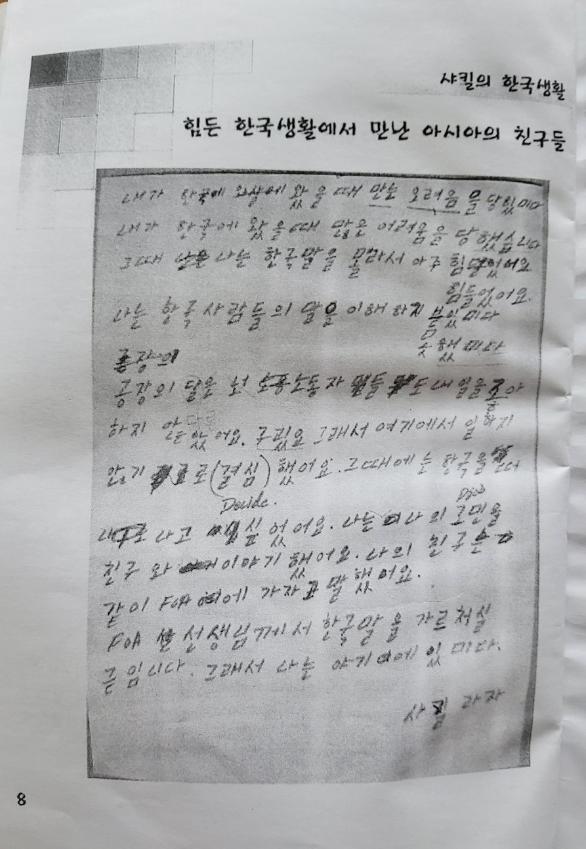 샤킬의 한국생활
힘든 한국생활에서 만난 아시아의 친구들
내가 한국에 왔을 때 만는 오려움을 당있미다
내가 한국에 왔을때 많은 어려움을 당했습니다
그때 나는 한국말을 몰라서 아주 힘 었어요
힘들었어요.
나는 한국사람들의 말을 이해 하지 믓있미다
못했미다
공장의
공장의 다른 노동자 도 내 일을 조아
하지 안았어요. 그리요 그래서 여기에서 일하지
않기 로 (결심) 했어요. 그때에는 한국을
Decide.
나고 싶 었어요. 나는 나의 고민을
친구와 이야기 했어요. 나의 친구는
같이 FOA 에 가자고 말했어요.
FOA 선생님께서 한국말을 가르처실
금입니다. 그래서 나는 야기에 있미다.
사킬 라자
8